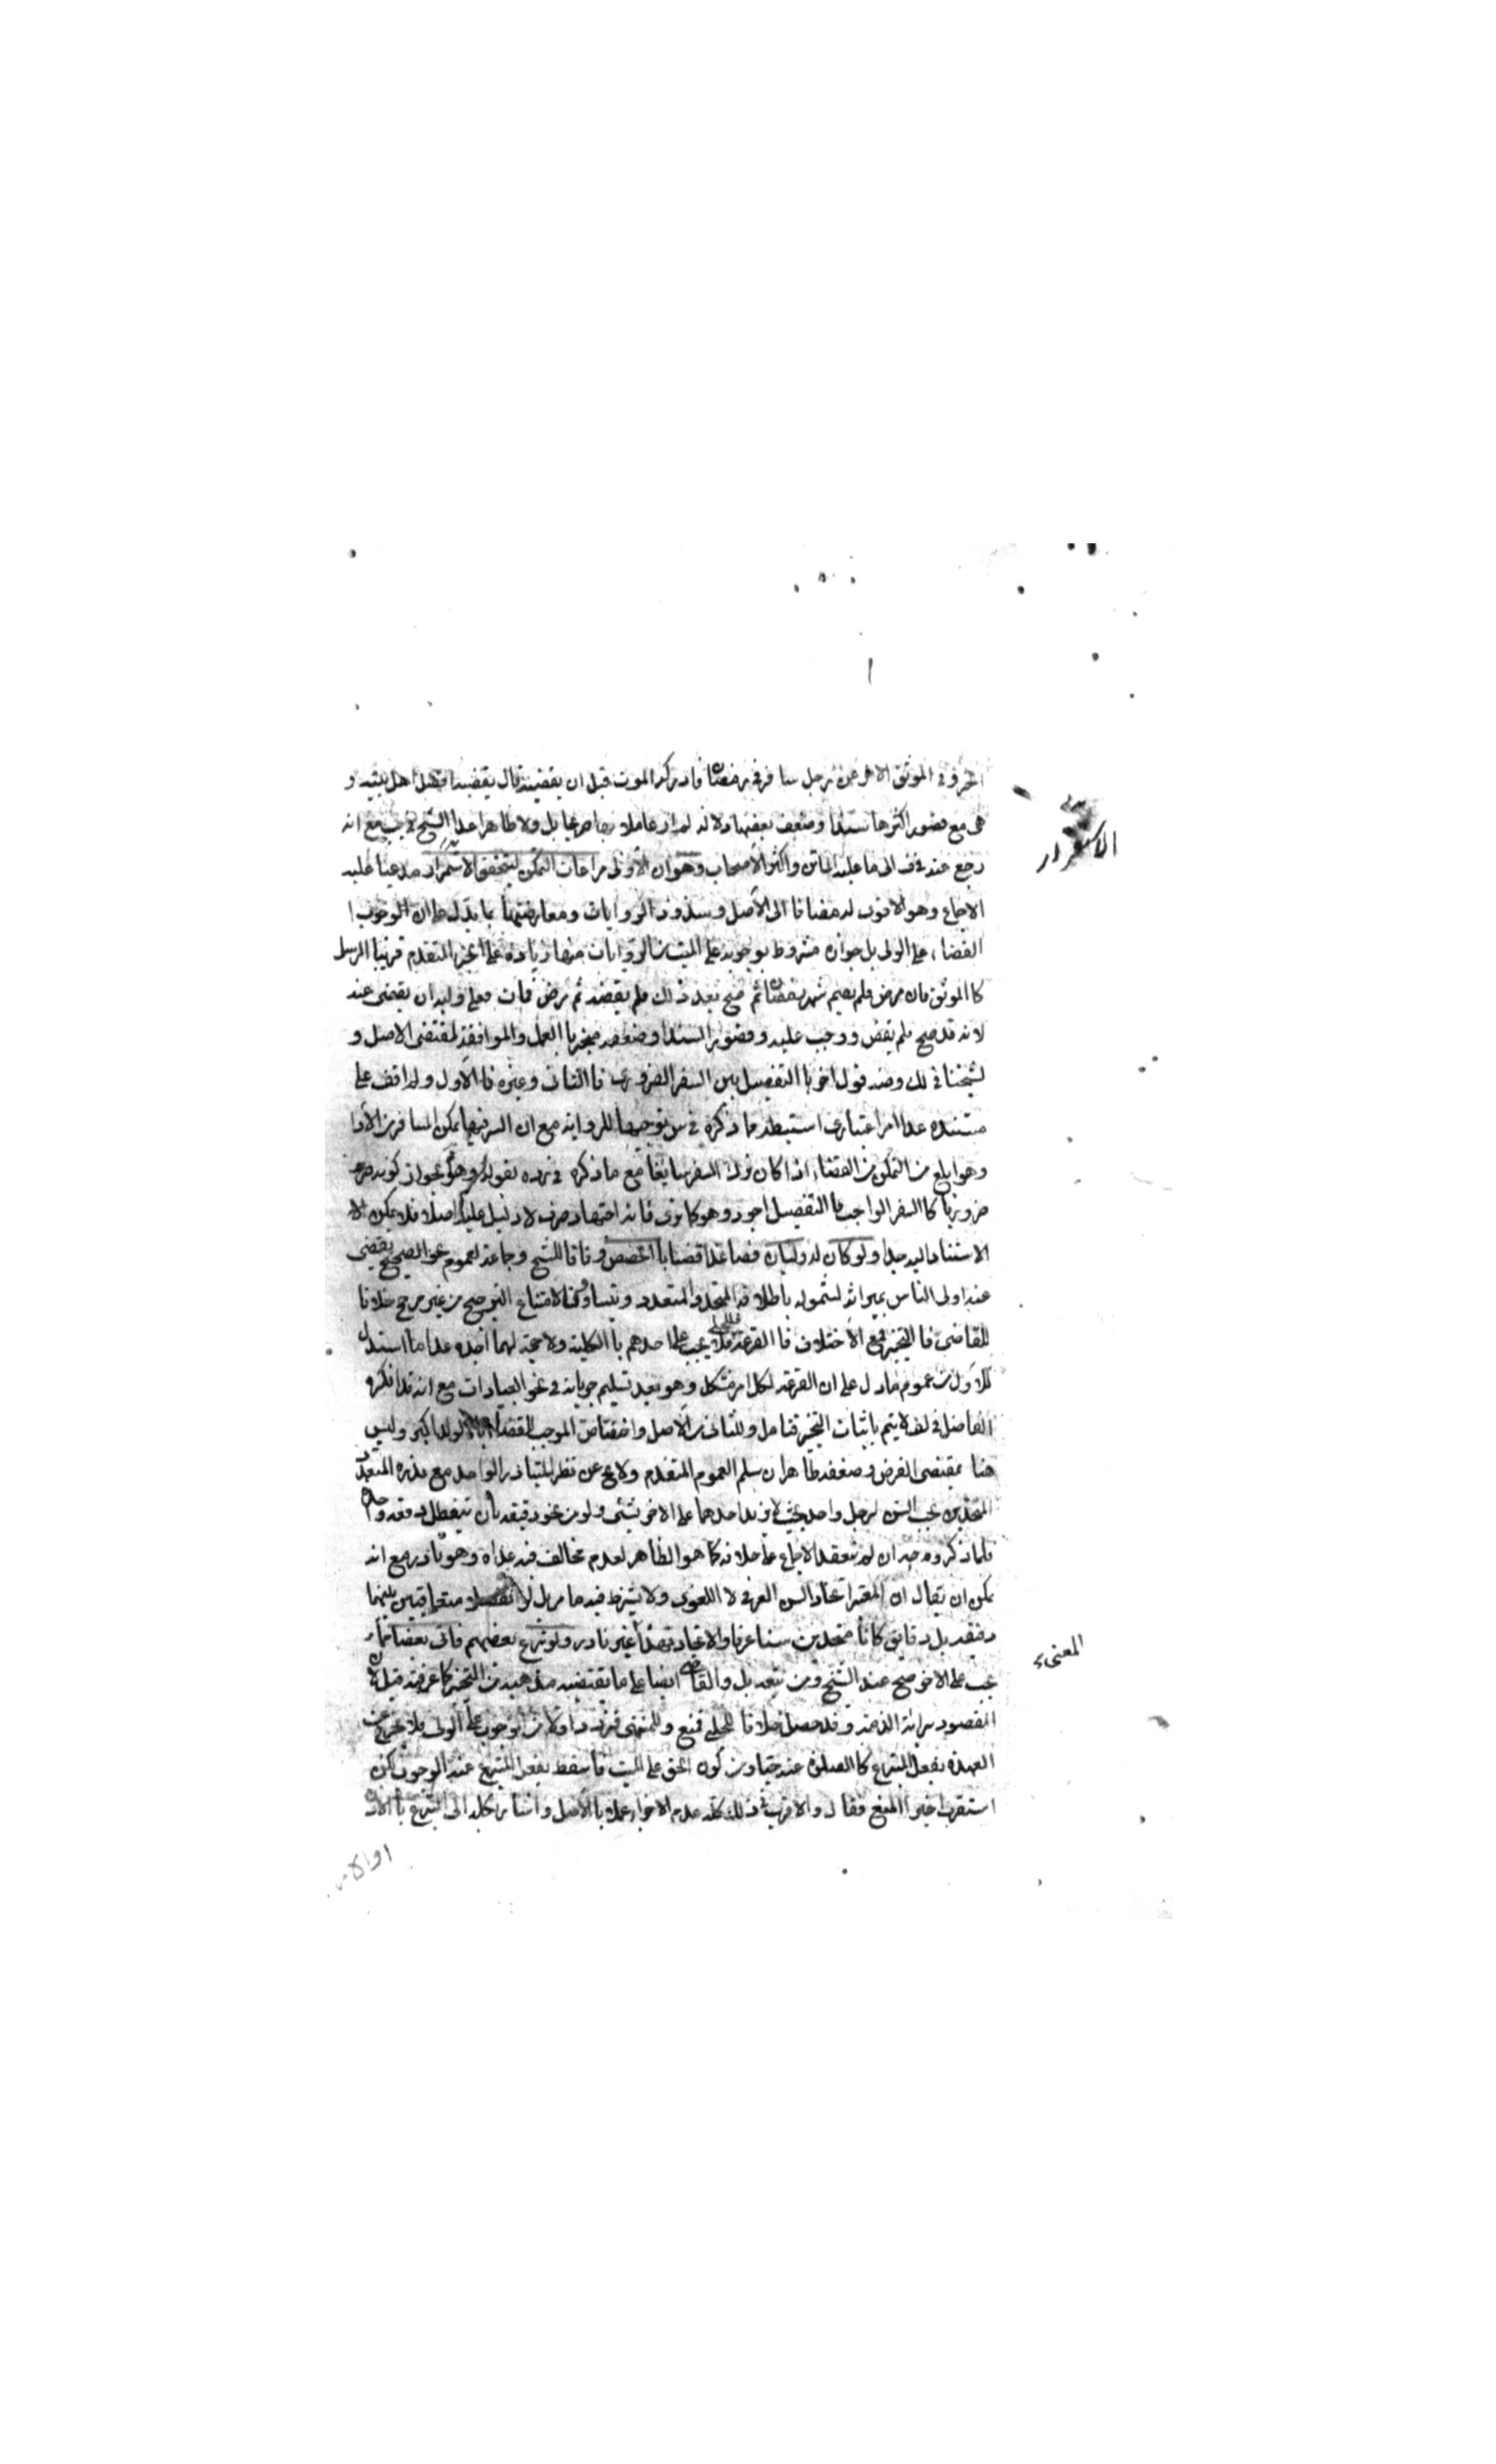 الحر وفي الموثق الا في عن رجل سافر في رمضان فادركه الموت قبل ان يقضيه قال يقضيه افضل اهل بيته و
هي مع قصور اكثرها سندا وضعف بعضها دلالة لم ار عاملا بها صريحا بل ولا ظاهرا عدا الشيخ في يب مع انه
رجع عنه في ف الى ما عليه الماتن واكثر الاصحاب وهو ان الاولى مراعات التمكن ليتحقق الاستقرار مدعيا عليه
الاجماع وهو الاقوى له مضافا الى الاصل وشذوذ الروايات ومعارضتها بما يدل على ان الوجوب
القضاء على الولى بل جوازه مشروط بوجوبه على الميت من الروايات منها زيادة على الخبر المتقدم قريبا المرسل
كالموثق فان مرض فلم يصم شهر رمضان ثم صح بعد ذلك فلم يقضه ثم مرض فمات فعلى وليه ان يقضى عنه
لانه قد صح فلم يقض ووجب عليه وقصور السند او ضعفه منجبر بالعمل والموافقة لمقتضى الاصل و
لشيخنا في لك وضه قول اخر بالتفصيل بين السفر الضرورى فالثانى وغيره فالاول ولم اقف على
مستنده عدا امر اعتبارى استنبطه مما ذكره في س توجيها للرواية مع ان السر فيها تمكن المسافر من الادا
وهو ابلغ من التمكن من القضاء اذا كان ترك السفر سايغا مع ما ذكره في رده بقوله وهو ممنوع لجواز كونه
ضروريا كالسفر الواجب فالتفصيل اجود وهو كما ترى فانه اجتهاد صرف لا دليل عليه اصلا فلا يمكن
الاستناد اليه جدا ولو كان له وليان فصاعدا قضيا بالحصص وفاقا للشيخ وجماعة لعموم نحو الصحيح يقضى
عنه اولى الناس بميراثه لشموله باطلاقه المتحد والمتعدد وتساوى لامتناع الترجيح من غير مرجح خلافا
للقاضى فالتخيير ومع الاختلاف فالقرعة وللحلى فلا يجب على احدهم بالكلية ولا حجة لهما اجده عدا ما استدل
للاول من عموم ما دل على ان القرعة لكل امر مشكل وهو بعد تسليم جريانه في نحو العبادات مع انه قد انكره
الفاضل في لف لا يتم باثبات التخيير فتامل وللثانى من الاصل واختصاص الموجب للقضاء بالولد الاكبر وليس
هنا بمقتضى الفرض وضعفه ظاهر ان سلم العموم المتقدم ولا يخ عن نظر لتبادر الواحد مع ندرة المتعدد
المتحدين بحسب السن لرجل واحد بحيث لا يزيد احدهما على الاخر بشئ ولو من نحو دقيقة
فلما ذكره وجه ان لم ينعقد الاجماع على خلافه كما هو الظاهر لعدم مخالف فيه عداه وهو نادر مع انه
يمكن ان يقال ان المعتبر اتحاد السن العرفى لا اللغوى ولا يشترط فيه ما مر بل لو انفصلا متعاقبين بينهما
دقيقة بل دقايق كانا متحدين سنا عرفا والاتحاد بهذا المعنى غير نادر ولو تبرع بعضهم فاتى بعضا مما
يجب على الاخر صح عند الشيخ ومن تبعه بل والقاضى ايضا على ما تقتضيه مذهبه من التخيير كما عرفته قيل لان
المقصود برائة الذمة وقد حصل خلافا للحلى فمنع وللمنتهى فتردد اولا من الوجوب على الولى فلا يخرج عن
العهدة بفعل المتبرع كالصلوة عنه حيا ومن كون الحق على الميت فاسقط بفعل المتبرع عنه الوجوب لكن
استقرب اخيرا المنع فقال والاقرب في ذلك كله عدم الاجزاء عملا بالاصل واشار بكله الى التبرع بالاذن
او الامر
الاستقرار
المعنى